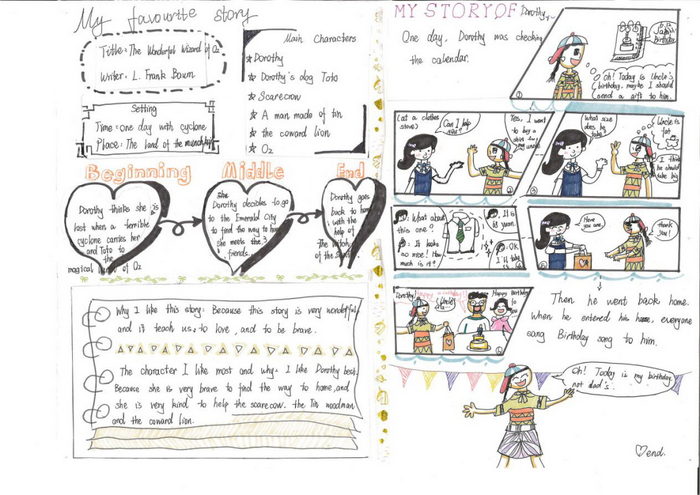 My favourite story
Title: The Wonderful Wizard of Oz
Writer: L. Frank Baum
Setting
Time: one day with cyclone
Place: The land of the munchkins
Main Characters
★Dorothy
★Dorothy's dog Toto
★Scarecrow
★A man made of tin
★the coward lion
★Oz
Beginning
Middle
End
Dorothy thinks she is
lost when a terrible
cyclone carries her
and Toto to the
magical land of Oz
Dorothy decides to go
to the Emerald City
to find the way to home
She meets the 3
friends.
Dorothy goes
back to home
with the
help of
the witch
of the South
Why I like this story: Because this story is very wonderful,
and it teach us to love, and to be brave.
The character I like most and why: I like Dorothy best.
Because she is very brave to find the way to home, and
she is very kind to help the scarecrow. the Tin woodman
and the coward lion.
MY STORY OF Dorothy
One day, Dorothy was checking
the calendar.
It is
Jam's
Birthday
Oh! Today is Uncle's
birthday, maybe I should
send a gift to him.
(at a clothes
store)
Can I help
you?
Yes, I want
to buy a
shirt for
my uncle
What size
does he
take?
Uncle is
fat
I think
he should
take big
What about
this one?
It looks
so nice! How
much is it?
It is
85 yuan.
OK
I'll take
Here
you are.
Thank
you!
Dorothy
Uncle
Happy Birthday
to
you
Then he went back home.
When he entered his home, everyone
song Birthday song to him.
Oh! Today is my birthday,
not dad's.
♡end.